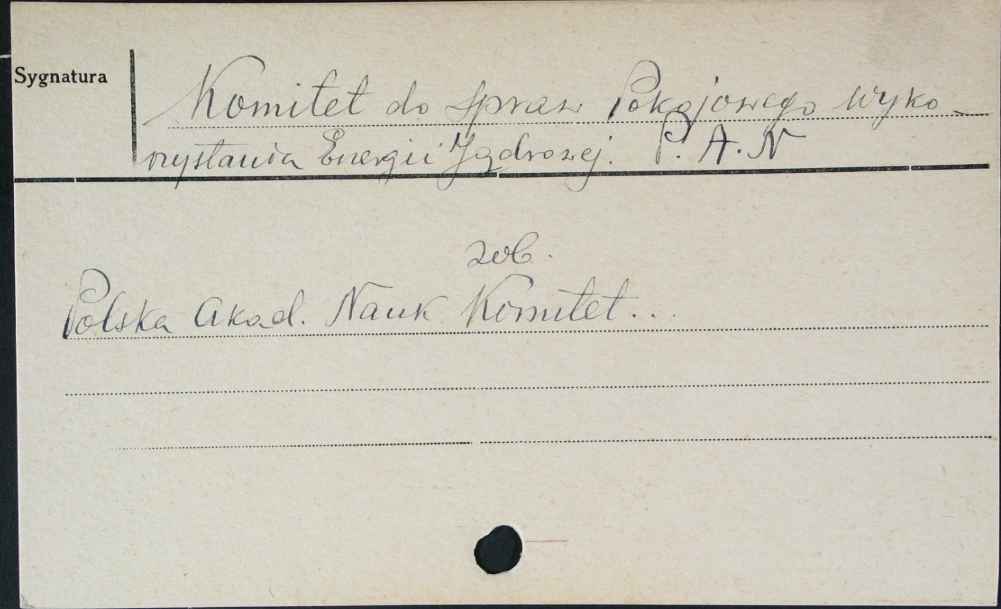 Sygnatura
Komitet do Spraw Pokojowego Wyko-
rzystania Energii Jądrowej. P. A. N
zob.
Polska Akad. Nauk Komitet...